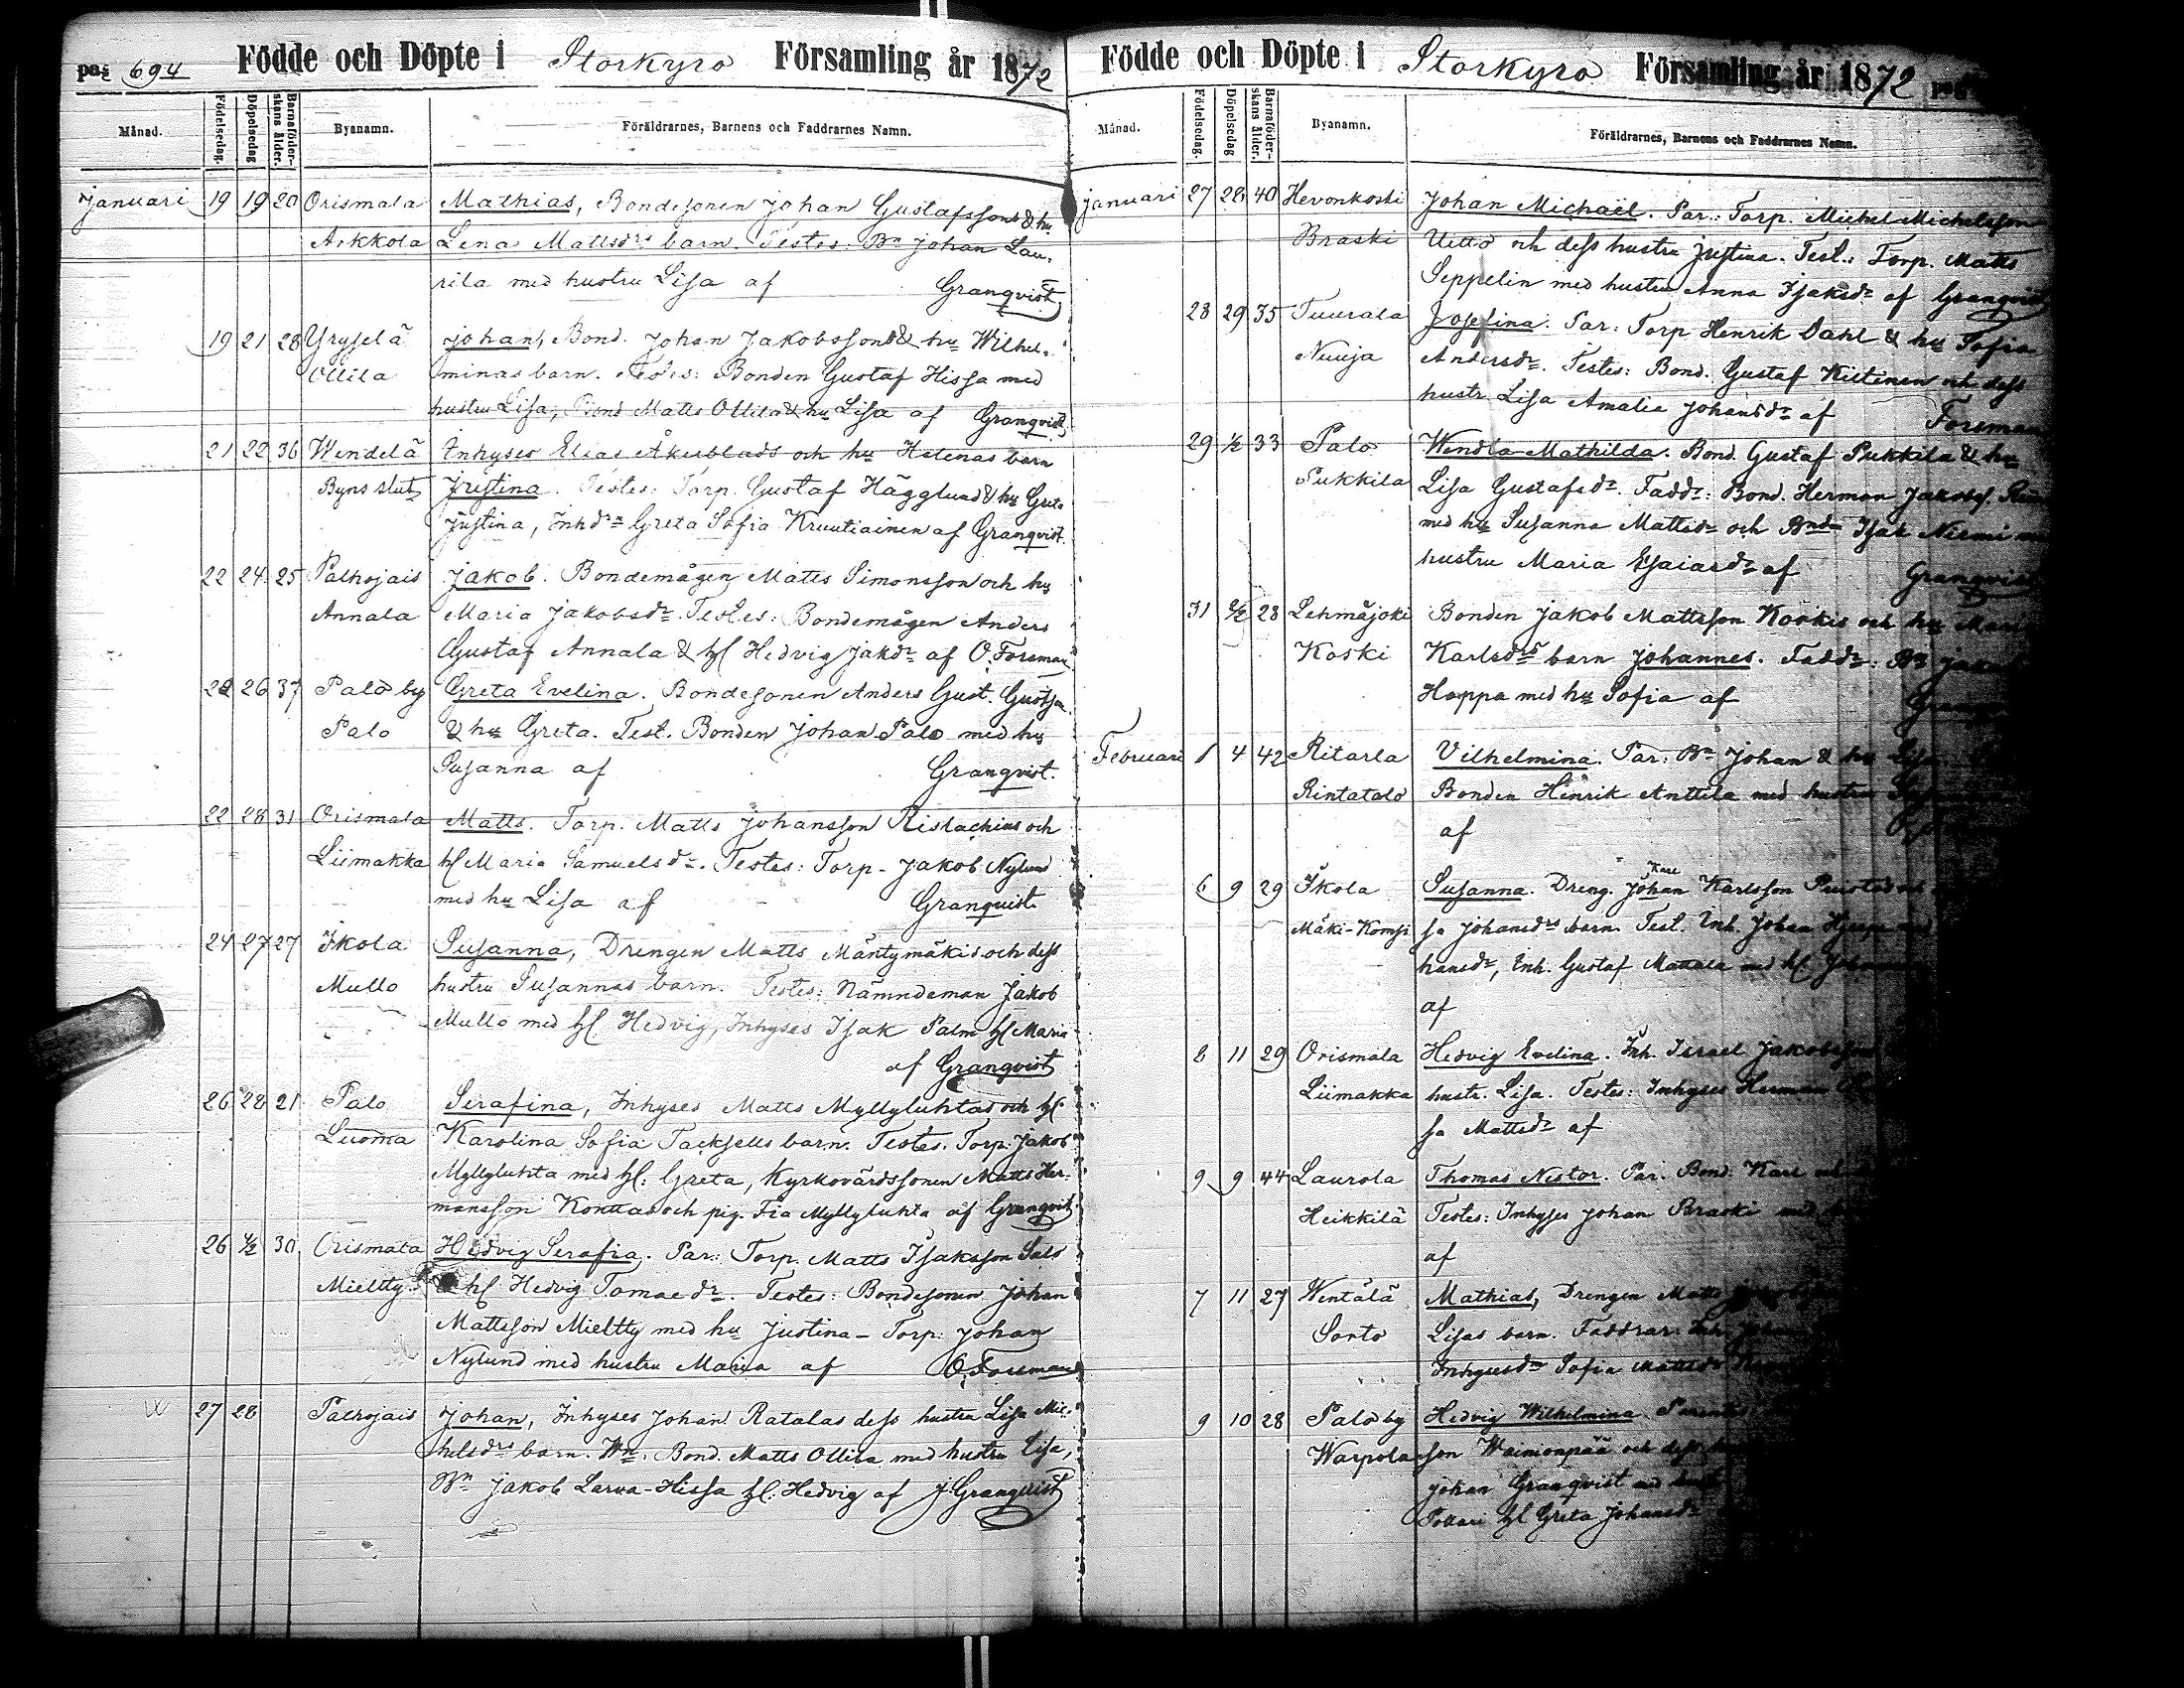 pag 694 Födde och Döpte i Storkyro Församling år 1872
Månad. Födelsedag. Döpelsedag Barnaföderskans ålder. Byanamn. Föräldrarnes, Barnens och Faddrarnes Namn.
Januari 19 19 20 Orismala Mathias, Bondesonen Johan Gustafssons & hu
Arkkola Lena Mattsdrs barn. Testes: Bn Johan Lau-
rila med hustru Lisa af Granqvist
19 21 28 Yryselä Johan, Bond. Johan Jakobssons & hu Wilhel-
Ollila minas barn. Testes: Bonden Gustaf Hissa med
hustru Lisa, Bond Matts Ollila & hu Lisa af Granqvist
21 22 36 Wendelä Inhyses Elias Åkerblads och hu Helenas barn
Byns slut Justina. Testes: Torp. Gustaf Hägglund & hu Greta
Justina, Inhdrn Greta Sofia Kruutiainen af Granqvist.
22 24 25 Palhojais Jakob. Bondemågen Matts Simonsson och hu
Annala Maria Jakobsdr. Testes: Bondemågen Anders
Gustaf Annala & hl Hedvig Jakdr af O. Forsman
22 26 37 Palo by Greta Evelina. Bondesonen Anders Gust. Gustss
Palo & hu Greta. Test. Bonden Johan Palo med hu
Susanna af Granqvist.
22 28 31 Orismala Matts. Torp. Matts Johansson Ristachius och
Liimakka hl Maria Samuelsdr. Testes: Torp. Jakob Nylund
med hu Lisa af Granquist.
24 27 27 Ikola Susanna, Drengen Matts Mäntymäkis och dess
Mullo hustru Susannas barn. Testes: Nämndeman Jakob
Mullo med hl Hedvig, Inhyses Isak Palm hl Maria
af Granqvist
26 28 21 Palo Serafina, Inhyses Matts Myllyluhtas och hl.
Luoma Karolina Sofia Tacksells barn. Testes. Torp. Jakob
Myllyluhta med hl. Greta, Kyrkovärdssonen Matts Her-
mansson Konttas och pig. Fia Myllyluhta af Granqvist
26 1/2 30 Orismala Hedvig Serafia. Par: Torp. Matts Isaksson Salo
Mieltty & hl Hedvig Tomaedr. Testes: Bondesonen Johan
Mattsson Mieltty med hu Justina - Torp. Johan
Nylund med hustru Maria af O. Forsman
27 28 Palhojais Johan, Inhyses Johan Ratalas dess hustru Lisa Mic-
helsdrs barn. Bond. Matts Ollila med hustru Lisa,
Bn Jakob Larva-Hissa hl. Hedvig af J. Granqvist
Födde och Döpte i Storkyro Församling år 1872
Månad. Födelsedag. Döpelsedag Barnaföderskans ålder. Byanamn. Föräldrarnes, Barnens och Faddrarnes Namn.
Januari 27 28 40 Hevonkoski Johan Michaël. Par.: Torp. Michel Michelsson
Braski Uitto och dess hustru Justina. Test.: Torp. Matts
Seppelin med hustru Anna Isaksdr af Granqvist
28 29 35 Tuurala Josefina. Par: Torp Henrik Dahl & hu Sofia
Nuuja Andersdr. Testes: Bond. Gustaf Kiltinen och dess
hustr Lisa Amalia Johansdr af Forsman
29 1/2 33 Palo Wendla Mathilda. Bond. Gustaf Pukkila & hu
Pukkila Lisa Gustafsdr. Faddr: Bond. Herman Jakobss.
med hu Susanna Mattsdr och Bnden Isak Niemi
hustru Maria Esaiasdr af Granqvist
31 2/2 28 Lehmäjoki Bonden Jakob Mattsson Koskis och hu Maria
Koski Karlsdrs barn Johannes. Faddr: Bn
Hoppa med hu Sofia af
Februari 1 4 42 Ritarla Vilhelmina. Par: Bn Johan & hu Lisa
Rintatalo Bonden Henrik Anttila med hustru
af
6 9 29 Ikola Susanna. Dreng. Johan Karlsson
Mäki-Kompi sa Johansdrs barn. Test. Inh. Johan
hansdr, Inh. Gustaf Mattala med hl
af
8 11 29 Orismala Hedvig Evelina. Inh. Israel Jakobsson
Liimakka hustr. Lisa. Testes: Inhyses Herman
sa Mattsdr af
9 9 44 Laurola Thomas Nestor. Par. Bond. Karl
Heikkilä Testes: Inhyses Johan Braski med
af
7 11 27 Wentälä Mathias, Drengen Matts
Sorto Lisas barn. Faddrar: Inh.
Inhysesdr Sofia Mattsdr
9 10 28 Palo by Hedvig Wilhelmina.
Warpola son Wainionpää och dess
Johan Granqvist med
Pottari hl Greta Johansdr